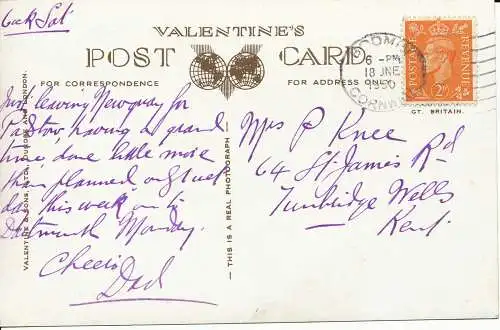 VALENTINE'S
POST CARD
FOR CORRESPONDENCE
FOR ADDRESS ONLY
Just leaving Newquay for
Padstow, having a grand
time done little more
than planned
days this week on to
Dartmouth Monday.
Cheerio
Dad
VALENTINE & SONS, LTD., DUNDEE AND LONDON.
— THIS IS A REAL PHOTOGRAPH —
BODMIN
6 - PM
18 JNE
1950
CORNWALL
POSTAGE
REVENUE
2D
GT. BRITAIN.
Mrs P Knee
64 St James Rd
Tunbridge Wells
Kent.